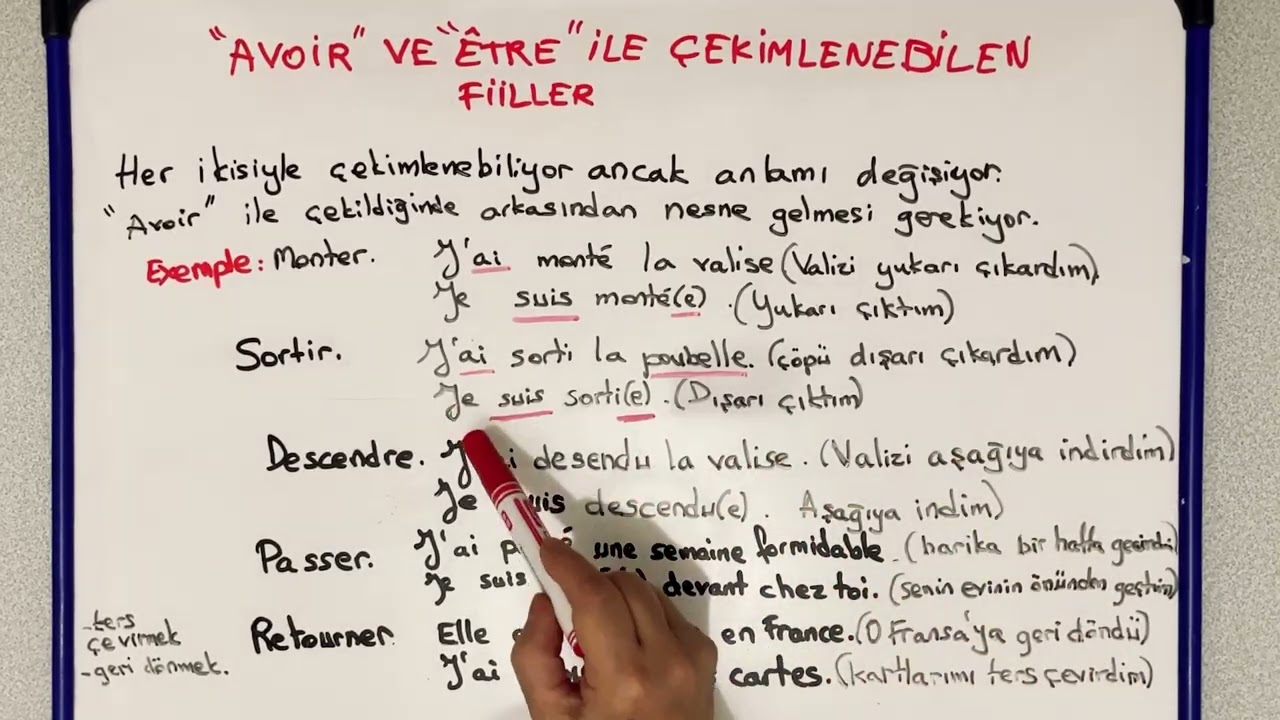 "AVOİR" VE "ÊTRE" İLE ÇEKİMLENEBİLEN
FİİLLER
Her ikisiyle çekimlenebiliyor ancak anlamı değişiyor.
"Avoir" ile çekildiğinde arkasından nesne gelmesi gerekiyor.
Exemple: Monter. J'ai monté la valise (Valizi yukarı çıkardım)
Je suis monté(e) . (Yukarı çıktım)
Sortir. J'ai sorti la poubelle. (çöpü dışarı çıkardım)
Je suis sorti(e) . (Dışarı çıktım)
Descendre. desendu la valise. (Valizi aşağıya indirdim)
Je descendu(e) . Aşağıya indim)
Passer. J'ai une semaine formidable. (harika bir hafta geçirdi)
Je suis devant chez toi. (senin evinin önünden geçtim)
Retourner. Elle en France. (O Fransa'ya geri döndü)
J'ai cartes. (kartlarımı ters çevirdim)
-ters
çevirmek
-geri dönmek.